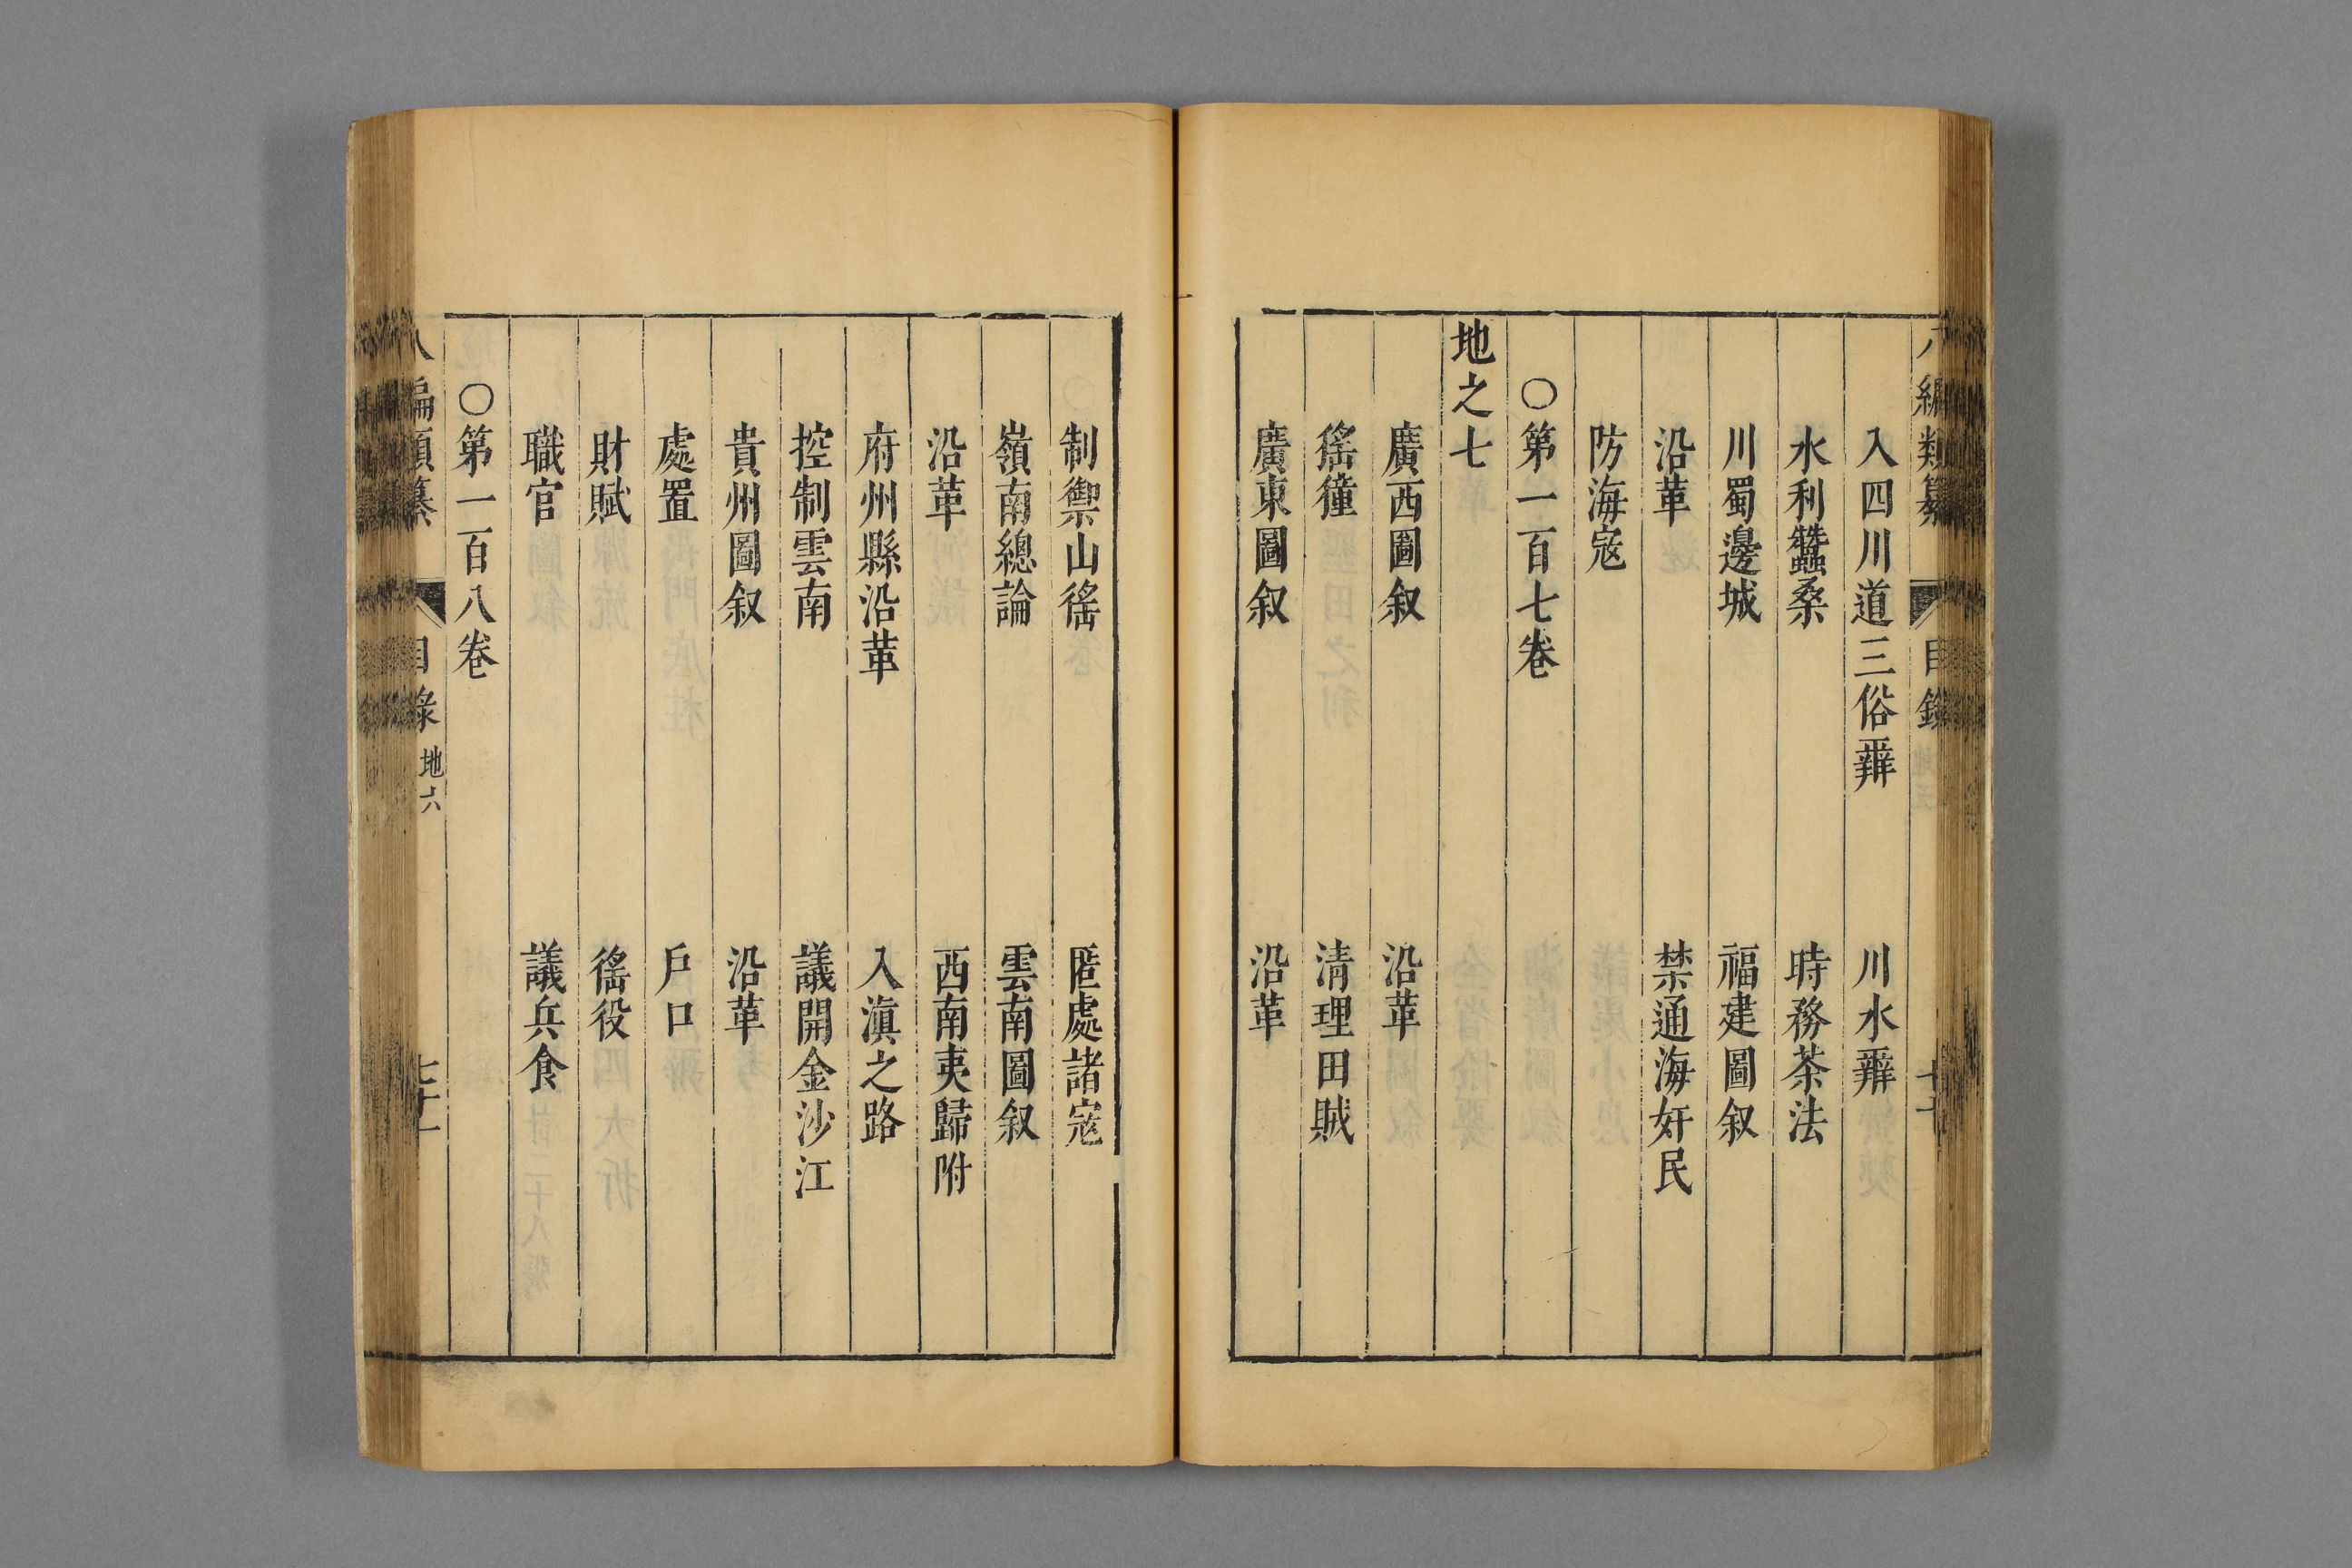 入四川道三俗辯　川水辯
水利蠶桑　時務茶法
川蜀邊城　福建圖叙
沿革　禁通海奸民
防海寇
○第一百七卷
地之七
廣西圖叙　沿革
猺獞　清理田賊
廣東圖叙　沿革
制禦山猺　匿處諸寇
嶺南總論　雲南圖叙
沿革　西南夷歸附
府州縣沿革　入滇之路
控制雲南　議開金沙江
貴州圖叙　沿革
處置　戶口
財賦　徭役
職官　議兵食
○第一百八卷
八編類纂　目錄　地六　七十一